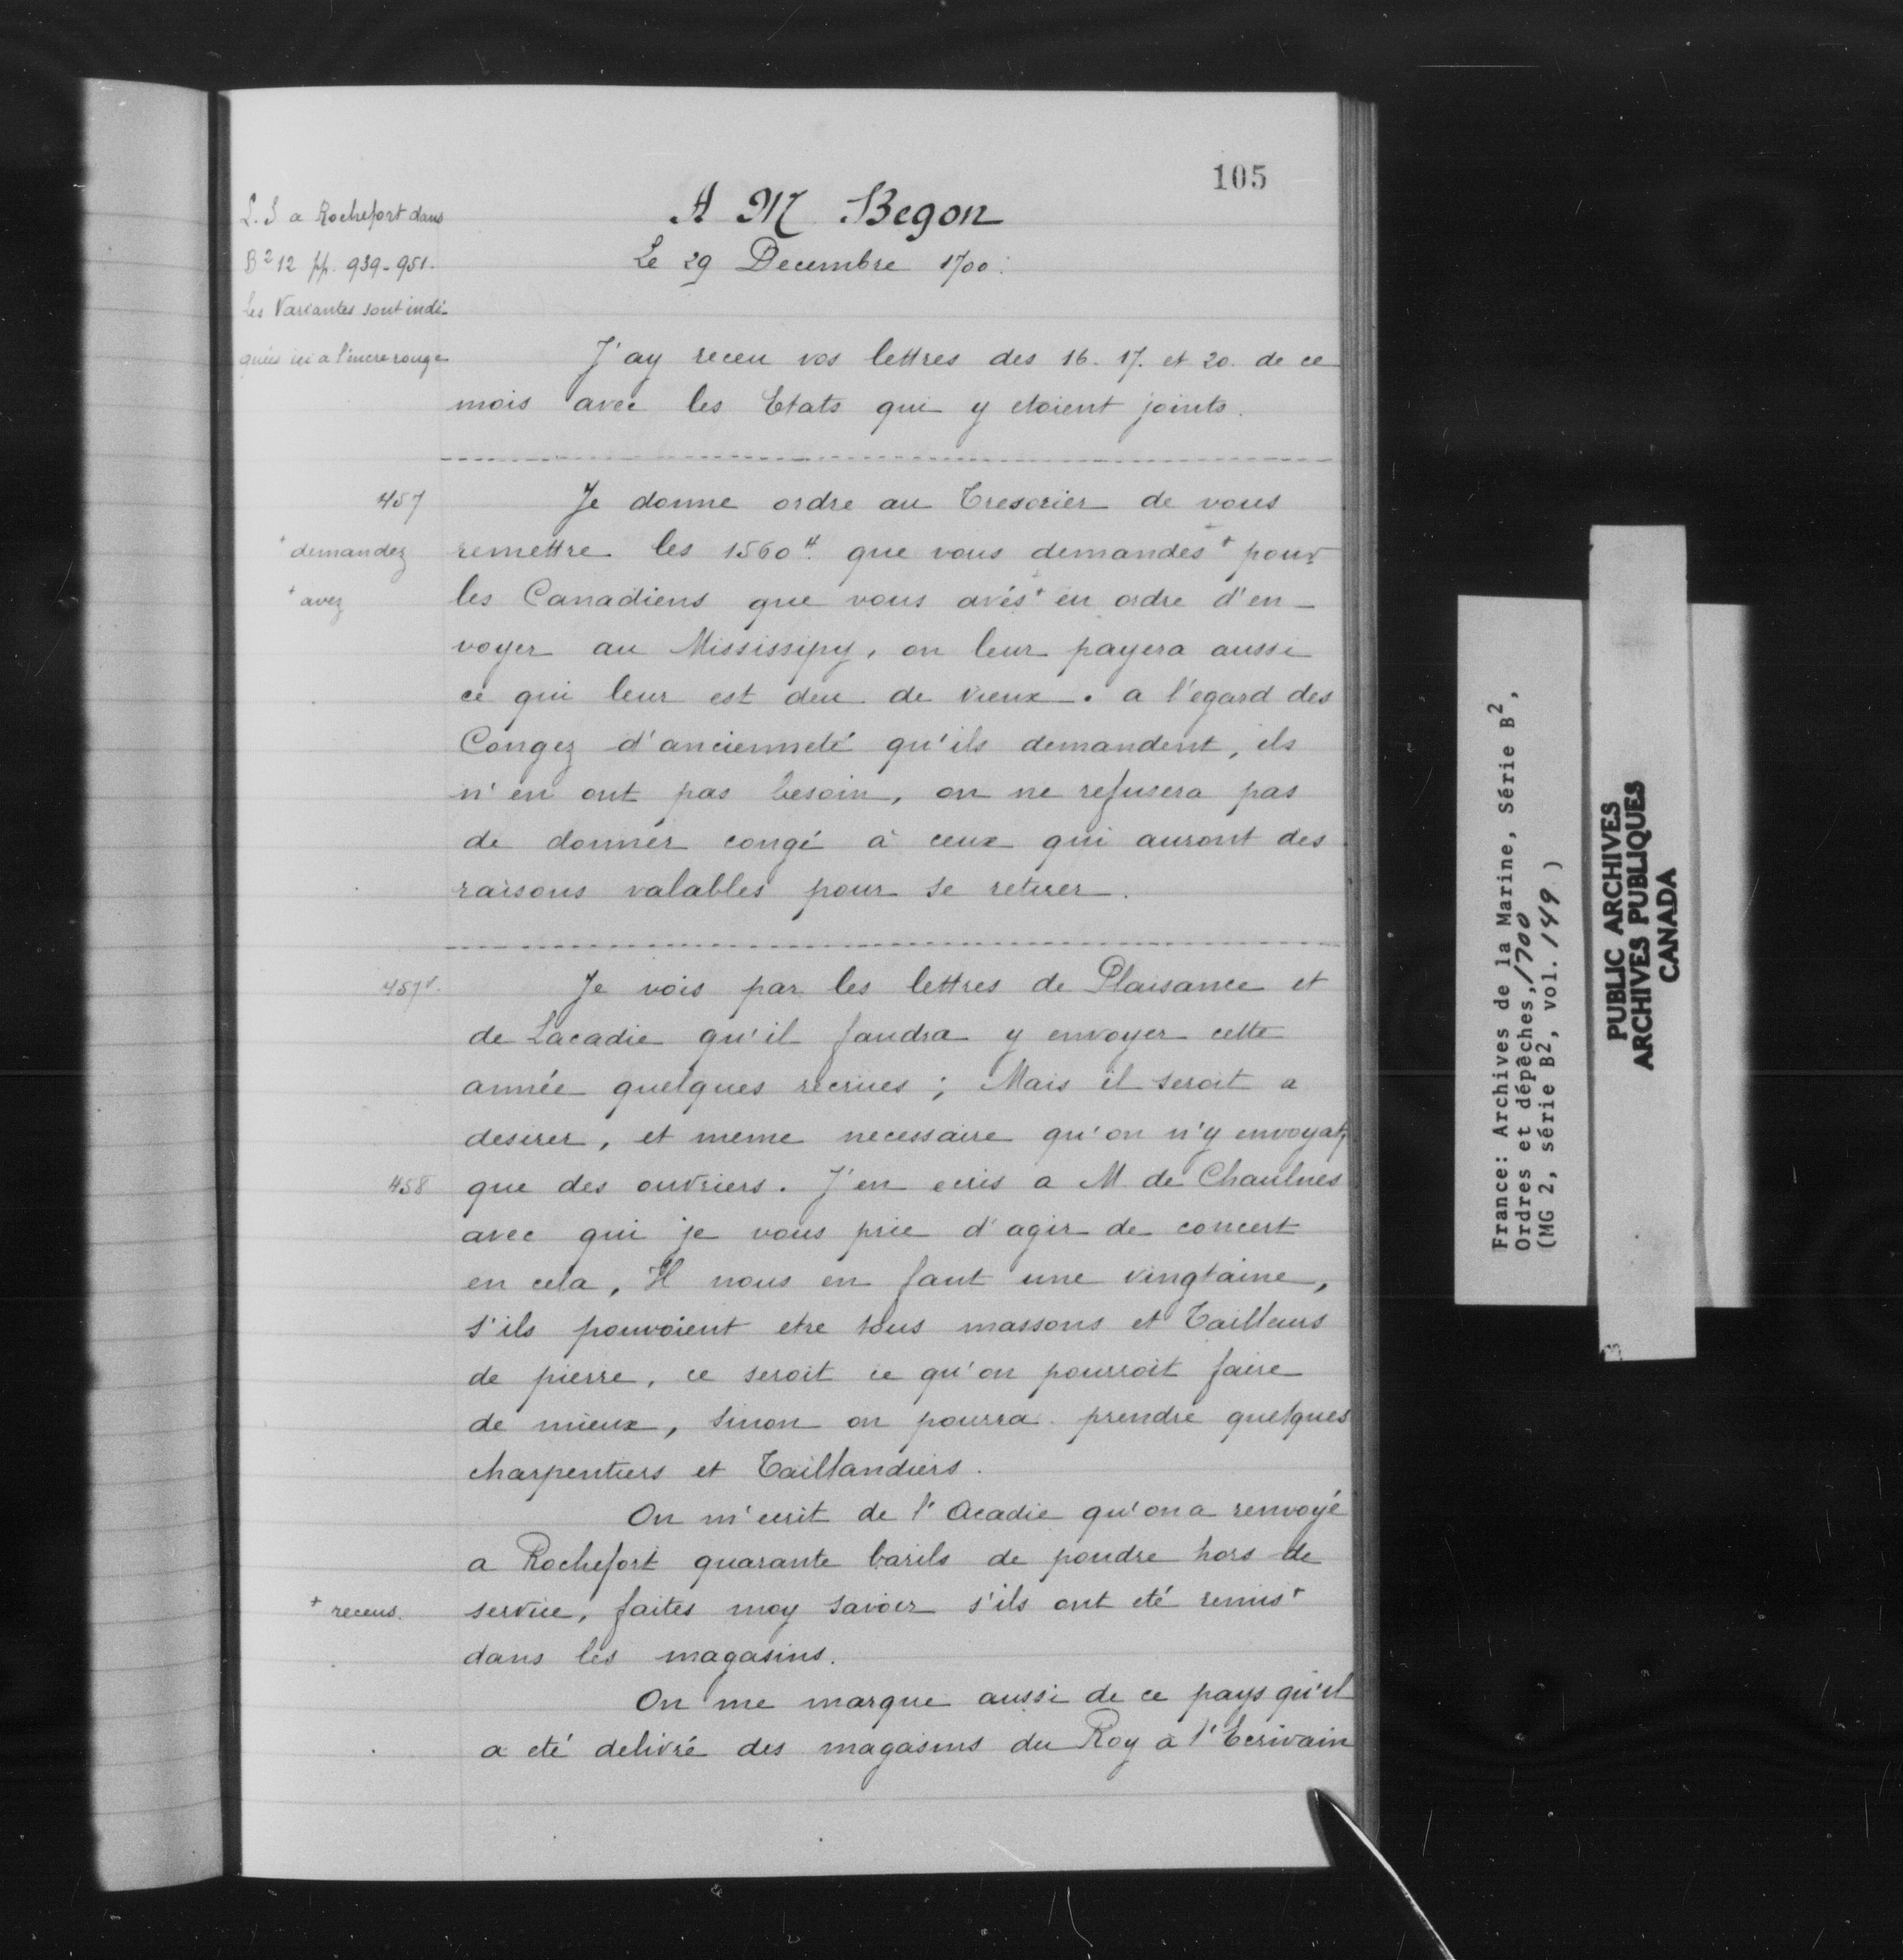 105
L. S a Rochefort dans
B² 12 pp. 939-951.
les Variantes sont indi-
quées ici a l'encre rouge
A M Begon
Le 29 Decembre 1700.
J'ay receu vos lettres des 16. 17. et 20. de ce
mois avec les Etats qui y etoient joints.
457
Je donne ordre au Tresorier de vous
+ demandez
remettre les 1560ᵗᵗ que vous demandés+ pour
+ avez
les Canadiens que vous avés+ eu ordre d'en-
voyer au Mississipy, on leur payera aussi
ce qui leur est deu de vieux. a l'egard des
Congez d'ancienneté qu'ils demandent, ils
n'en ont pas besoin, on ne refusera pas
de donner congé à ceux qui auront des
raisons valables pour se retirer.
457v.
Je vois par les lettres de Plaisance et
de Lacadie qu'il faudra y envoyer cette
année quelques recrues ; Mais il seroit a
desirer, et meme necessaire qu'on n'y envoyat
458
que des ouvriers. J'en ecris a M de Chaulnes
avec qui je vous prie d'agir de concert
en cela, Il nous en faut une vingtaine,
s'ils pouvoient etre tous massons et Tailleurs
de pierre, ce seroit ce qu'on pourroit faire
de mieux, sinon on pourra prendre quelques
charpentiers et Taillandiers.
On m'ecrit de l'Acadie qu'on a renvoyé
a Rochefort quarante barils de poudre hors de
+ receus.
service, faites moy savoir s'ils ont eté remis+
dans les magasins.
On me marque aussi de ce pays qu'il
a eté delivré des magasins du Roy a l'Ecrivain
France: Archives de la Marine, Série B²,
Ordres et dépêches, 1700
(MG 2, série B2, vol. 149 )
PUBLIC ARCHIVES
ARCHIVES PUBLIQUES
CANADA